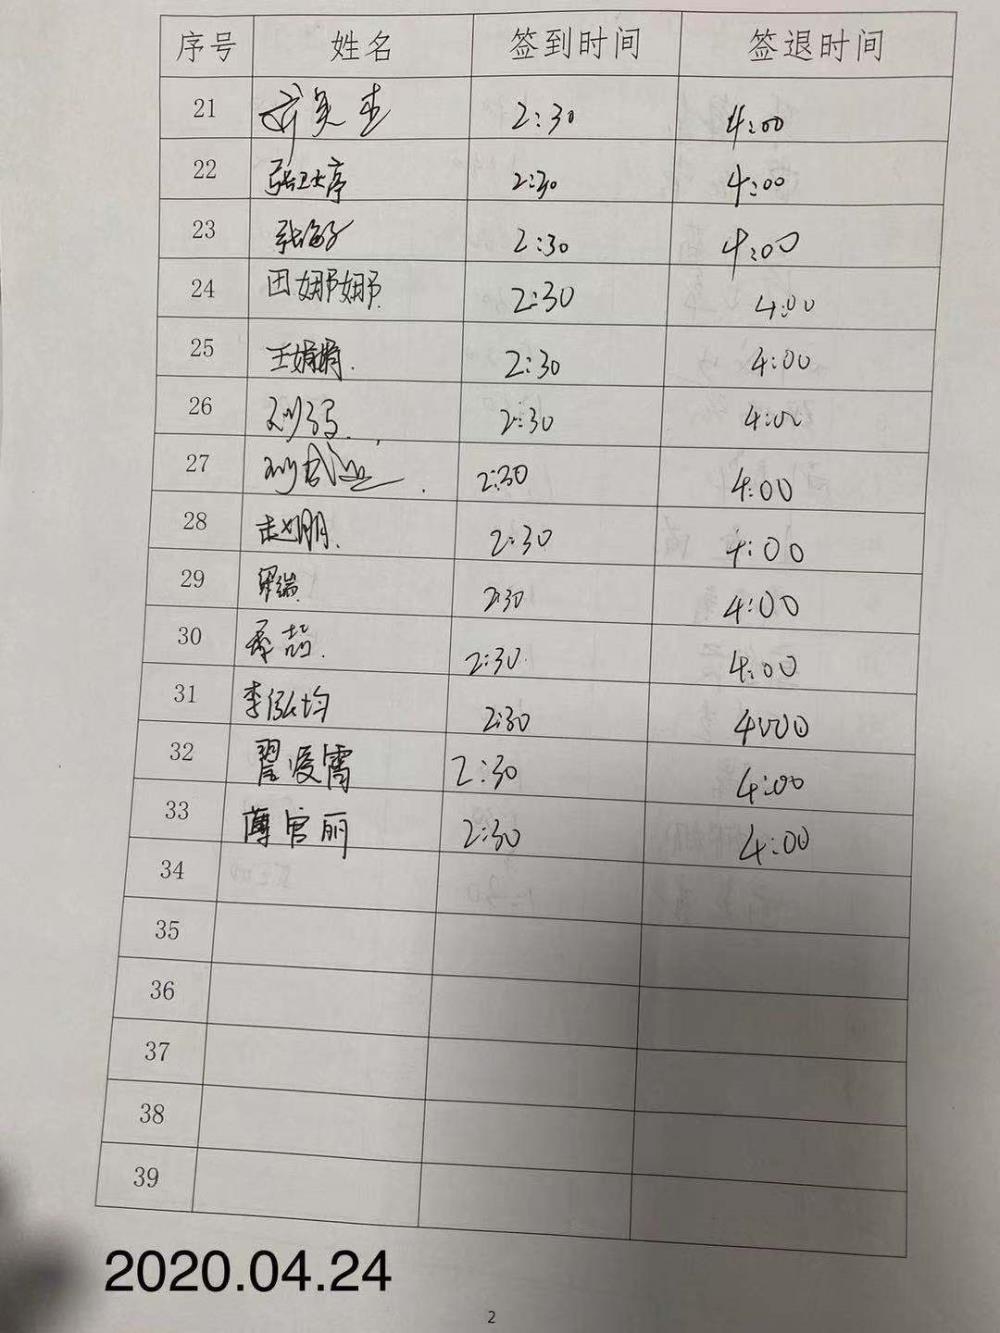 序号 姓名 签到时间 签退时间
21 2:30 4:00
22 2:30 4:00
23 张海 2:30 4:00
24 田娜娜 2:30 4:00
25 王娟娟 2:30 4:00
26 刘 2:30 4:00
27 刘 2:30 4:00
28 赵朋 2:30 4:00
29 2:30 4:00
30 2:30 4:00
31 李泓均 2:30 4:00
32 翟凌霄 2:30 4:00
33 薄官丽 2:30 4:00
34
35
36
37
38
39
2020.04.24
2